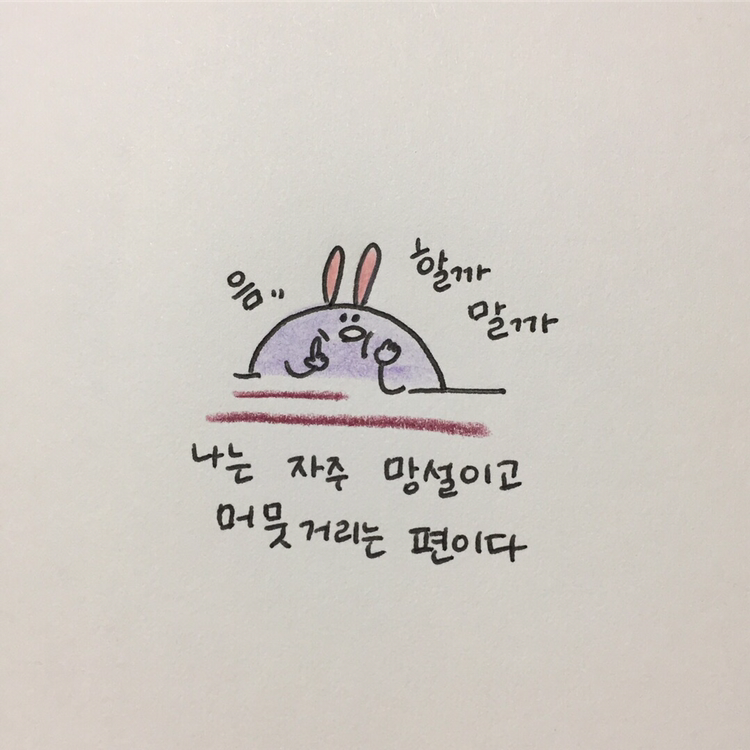 음..
할까
말까
나는 자주 망설이고
머뭇거리는 편이다